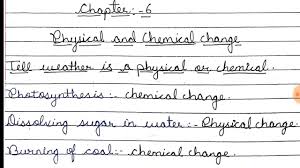 Chapter:-6
Physical and Chemical change
Tell weather is a physical or chemical.
Photosynthesis:- chemical change.
Dissolving sugar in water:- Physical change.
Burning of coal:- chemical change.